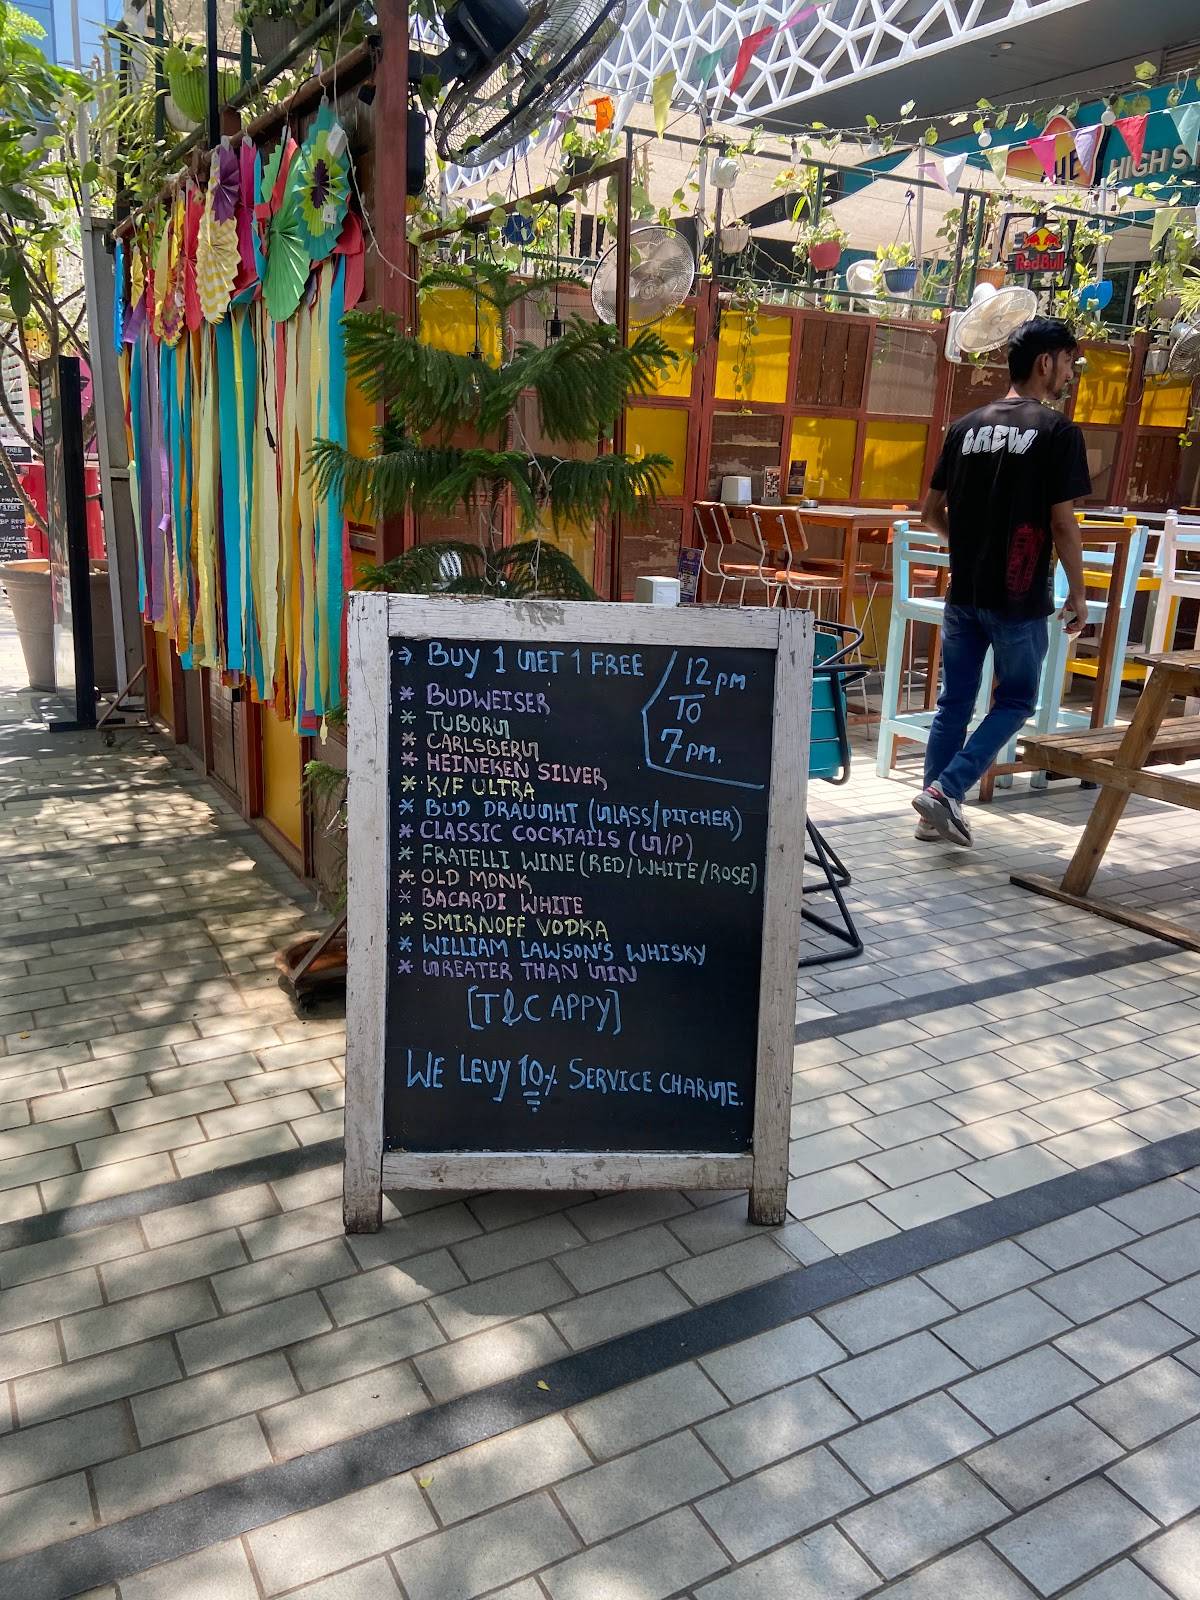 → BUY 1 GET 1 FREE
12 pm
TO
7 PM.
* BUDWEISER
* TUBORG
* CARLSBERG
* HEINEKEN SILVER
* K/F ULTRA
* BUD DRAUGHT (GLASS/PITCHER)
* CLASSIC COCKTAILS (G/P)
* FRATELLI WINE (RED/WHITE/ROSE)
* OLD MONK
* BACARDI WHITE
* SMIRNOFF VODKA
* WILLIAM LAWSON'S WHISKY
* GREATER THAN GIN
[T&C APPY]
WE LEVY 10% SERVICE CHARGE.
CREW
HIGH ST
Red Bull